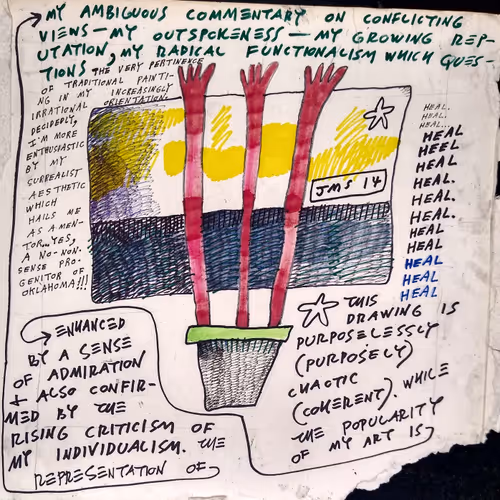 MY AMBIGUOUS COMMENTARY ON CONFLICTING
VIEWS — MY OUTSPOKENESS — MY GROWING REP-
UTATION, MY RADICAL FUNCTIONALISM WHICH QUES-
TIONS THE VERY PERTINENCE
OF TRADITIONAL PAINTI-
NG IN MY INCREASINGLY
IRRATIONAL ORIENTATION.
DECIDEDLY,
I'M MORE
ENTHUSIASTIC
BY MY
SURREALIST
AESTHETIC
WHICH
HAILS ME
AS A MEN-
TOR...YES,
A NO-NON-
SENSE PRO-
GENITOR OF
OKLAHOMA!!!
JMS 14
HEAL.
HEAL.
HEAL...
HEAL
HEEL
HEAL
HEAL.
HEAL.
HEAL.
HEAL
HEAL
HEAL
HEAL
HEAL
THIS
DRAWING IS
PURPOSELESSLY
(PURPOSELY)
CHAOTIC
(COHERENT). WHILE
THE POPULARITY
OF MY ART IS
ENHANCED
BY A SENSE
OF ADMIRATION
+ ALSO CONFIR-
MED BY THE
RISING CRITICISM OF
MY INDIVIDUALISM. THE
REPRESENTATION OF